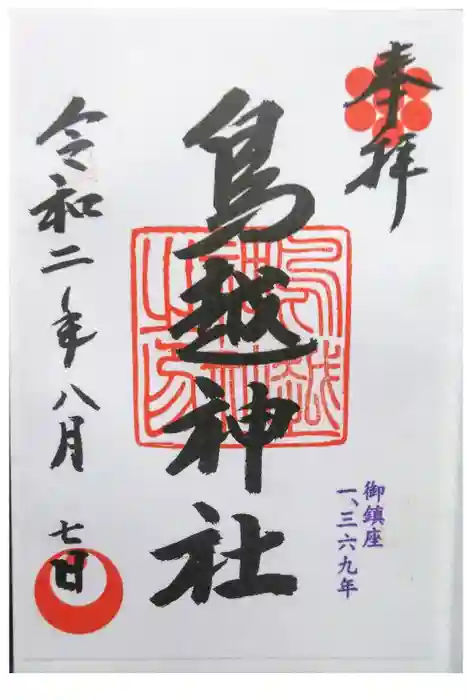 奉拝
鳥越神社
御鎮座
一、三六九年
令和二年八月
七日